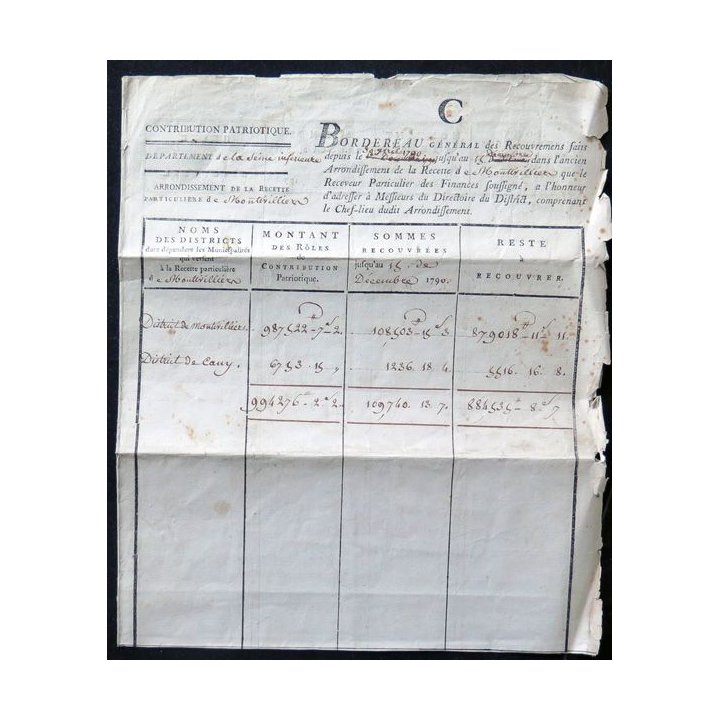 C
CONTRIBUTION PATRIOTIQUE.
DÉPARTEMENT de la Seine inferieure
ARRONDISSEMENT DE LA RECETTE
PARTICULIERE de Montivilliers
BORDEREAU GÉNÉRAL des Recouvremens faits
depuis le 1790. jusqu'au 15 dans l'ancien
Arrondissement de la Recette de Montivilliers que le
Receveur Particulier des Finances soussigné, a l'honneur
d'adresser à Messieurs du Directoire du District, comprenant
le Chef-lieu dudit Arrondissement.
NOMS
DES DISTRICTS
dont dépendent les Municipalités
qui versent
à la Recette particulière
de Montivilliers
MONTANT
DES RÔLES
de
CONTRIBUTION
Patriotique.
SOMMES
RECOUVRÉES
jusqu'au 15 de
Décembre 1790.
RESTE
à
RECOUVRER.
District de Montivilliers. 987522 - 7 - 2. 108503 - 15 - 3. 879018 - 11 - 11.
District de Cany. 6753 . 15 , 1236 . 18 . 4. 5516 . 16 . 8.
994276 - 2 - 2. 109740 . 13 . 7. 884535 - 8 - 7.